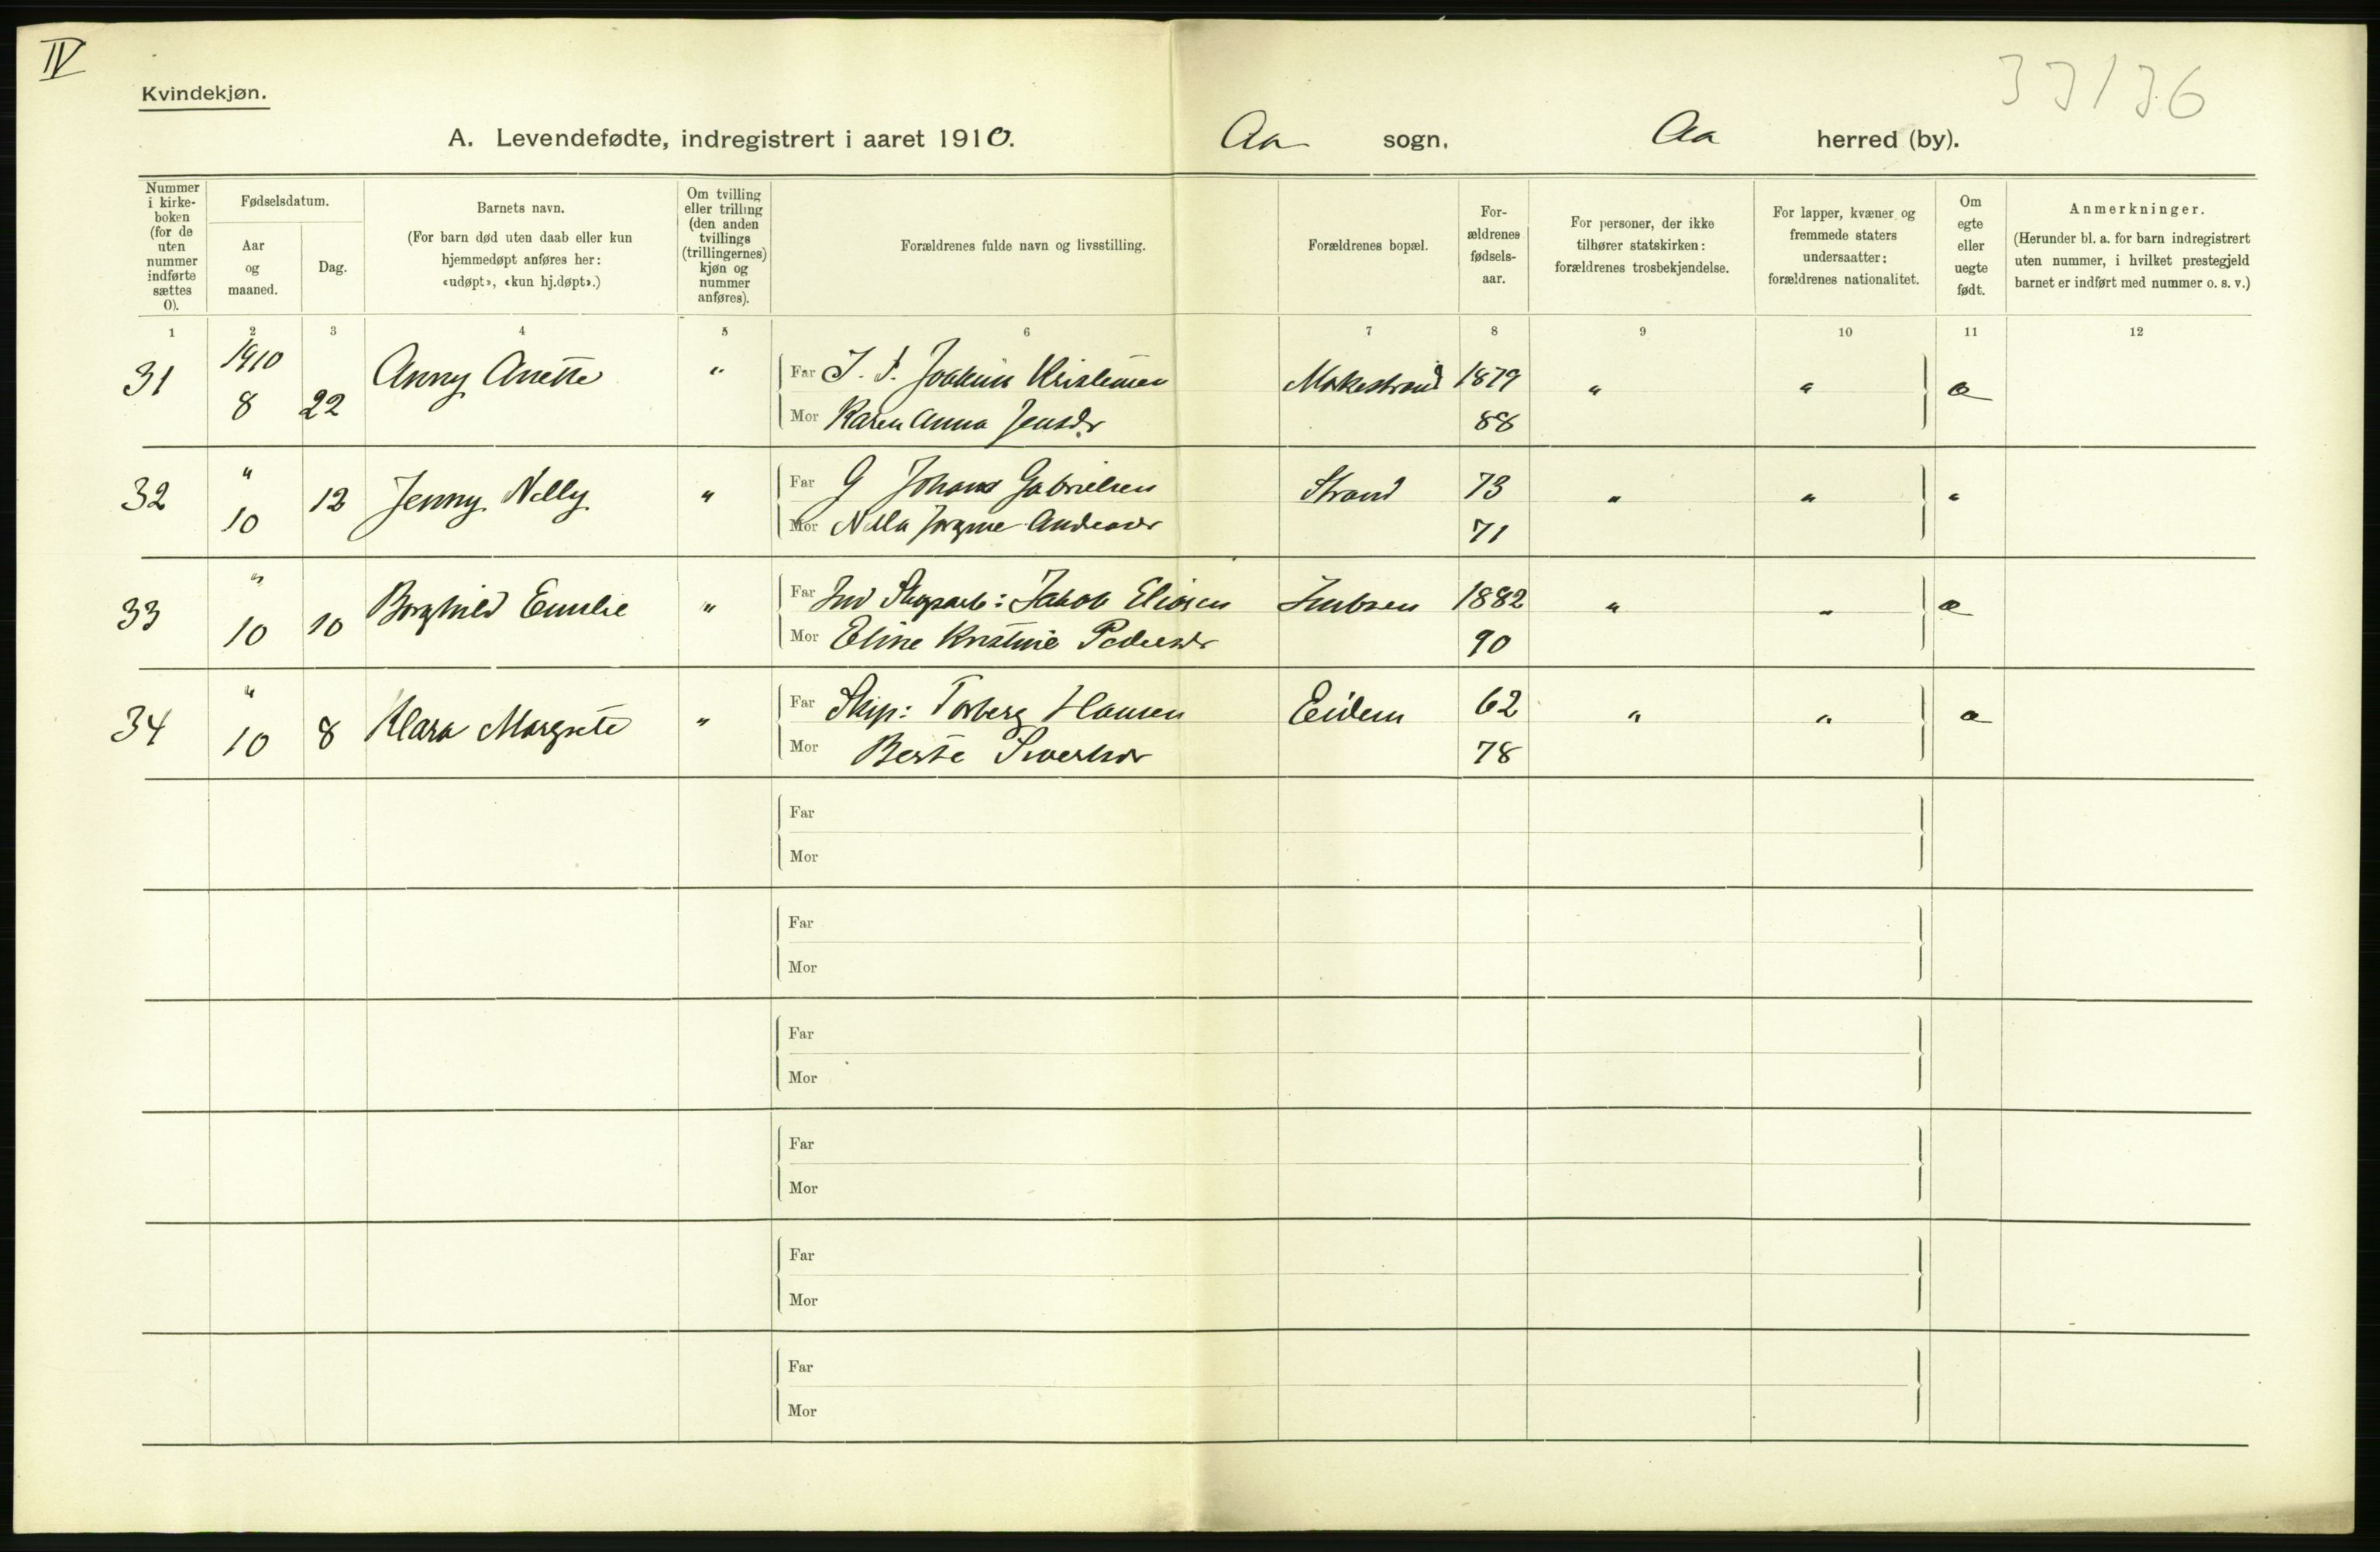 IV
3336
Kvindekjøn.
A. Levendefødte, indregistrert i aaret 1910. Aa sogn, Aa herred (by).
Nummer i kirkeboken (for de uten nummer indførte sættes 0).
Fødselsdatum.
Aar og maaned.
Dag.
Barnets navn.
(For barn død uten daab eller kun hjemmedøpt anføres her: «udøpt», «kun hj.døpt».)
Om tvilling eller trilling (den anden tvillings (trillingernes) kjøn og nummer anføres).
Forældrenes fulde navn og livsstilling.
Forældrenes bopæl.
Forældrenes fødselsaar.
For personer, der ikke tilhører statskirken: forældrenes trosbekjendelse.
For lapper, kvæner og fremmede staters undersaatter: forældrenes nationalitet.
Om egte eller uegte født.
Anmerkninger.
(Herunder bl. a. for barn indregistrert uten nummer, i hvilket prestegjeld barnet er indført med nummer o. s. v.)
1 2 3 4 5 6 7 8 9 10 11 12
31 1910 8 22 Anny Anette " Far J. Joakim Kristensen 1879 " "
Mor Karen Anna Jensdr 88
32 " 10 12 Jenny Nelly " Far G Johans Gabrielsen Strand 73 " " "
Mor Andreasdr 71
33 " 10 10 Borghild Emelie " Far Jakob Eliasen 1882 " "
Mor Eline Kristine Pedersdr 90
34 " 10 8 Klara Margrete " Far Skip: Torberg Hansen Eidem 62 " "
Mor Berte Sivertsdr 78
Far
Mor
Far
Mor
Far
Mor
Far
Mor
Far
Mor
Far
Mor